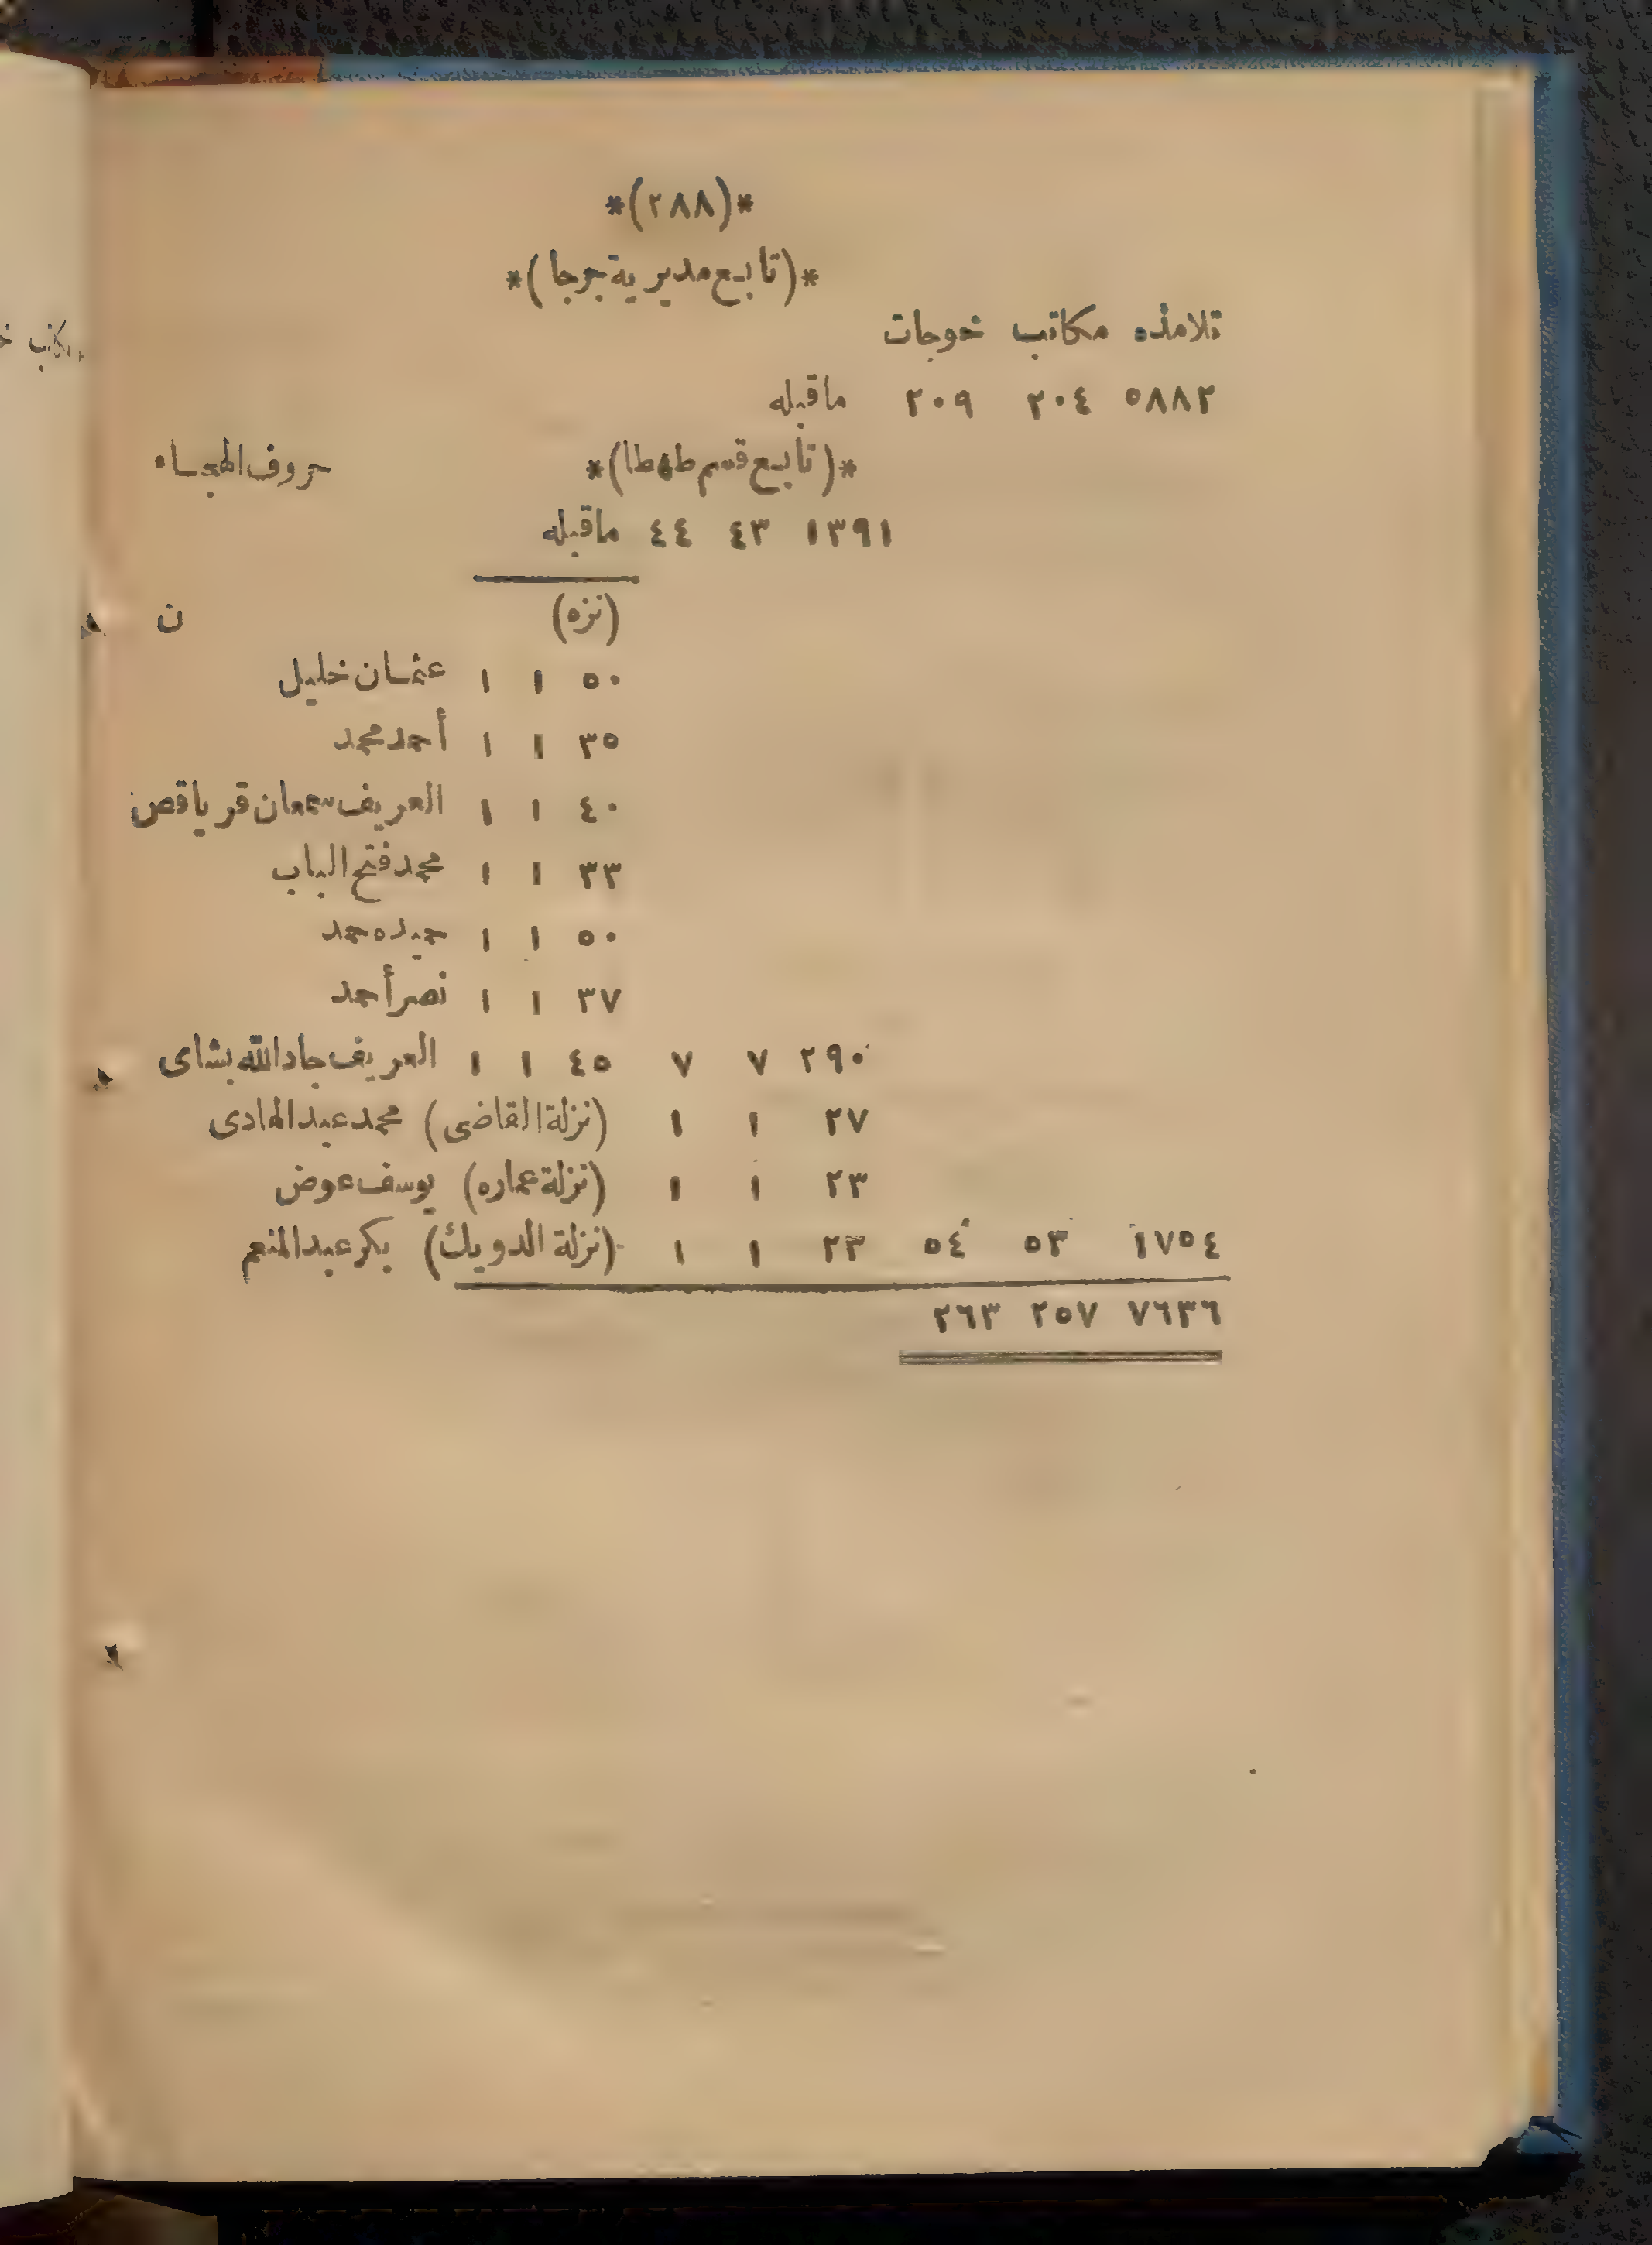 *(٢٨٨)*
*(تابع مديرية جرجا)*
تلامذه مكاتب خوجات
٥٨٨٢ ٢٠٤ ٢٠٩ ماقبله
*(تابع قسم طهطا)* حروف الهجاء
١٣٩١ ٤٣ ٤٤ ماقبله
(نزه) ن
٥٠ ١ ١ عثمان خليل
٣٥ ١ ١ أحمد محمد
٤٠ ١ ١ العريف سمعان قرياقص
٣٣ ١ ١ محمد فتح الباب
٥٠ ١ ١ حميده حمد
٣٧ ١ ١ نصر أحمد
٢٩٠ ٧ ٧ ٤٥ ١ ١ العريف جاد الله بشاى
٢٧ ١ ١ (نزلة القاضى) محمد عبد الهادى
٢٣ ١ ١ (نزلة عماره) يوسف عوض
١٧٥٤ ٥٣ ٥٤ ٢٣ ١ ١ (نزلة الدويك) بكر عبد المنعم
٧٦٣٦ ٢٥٧ ٢٦٣
مكاتب